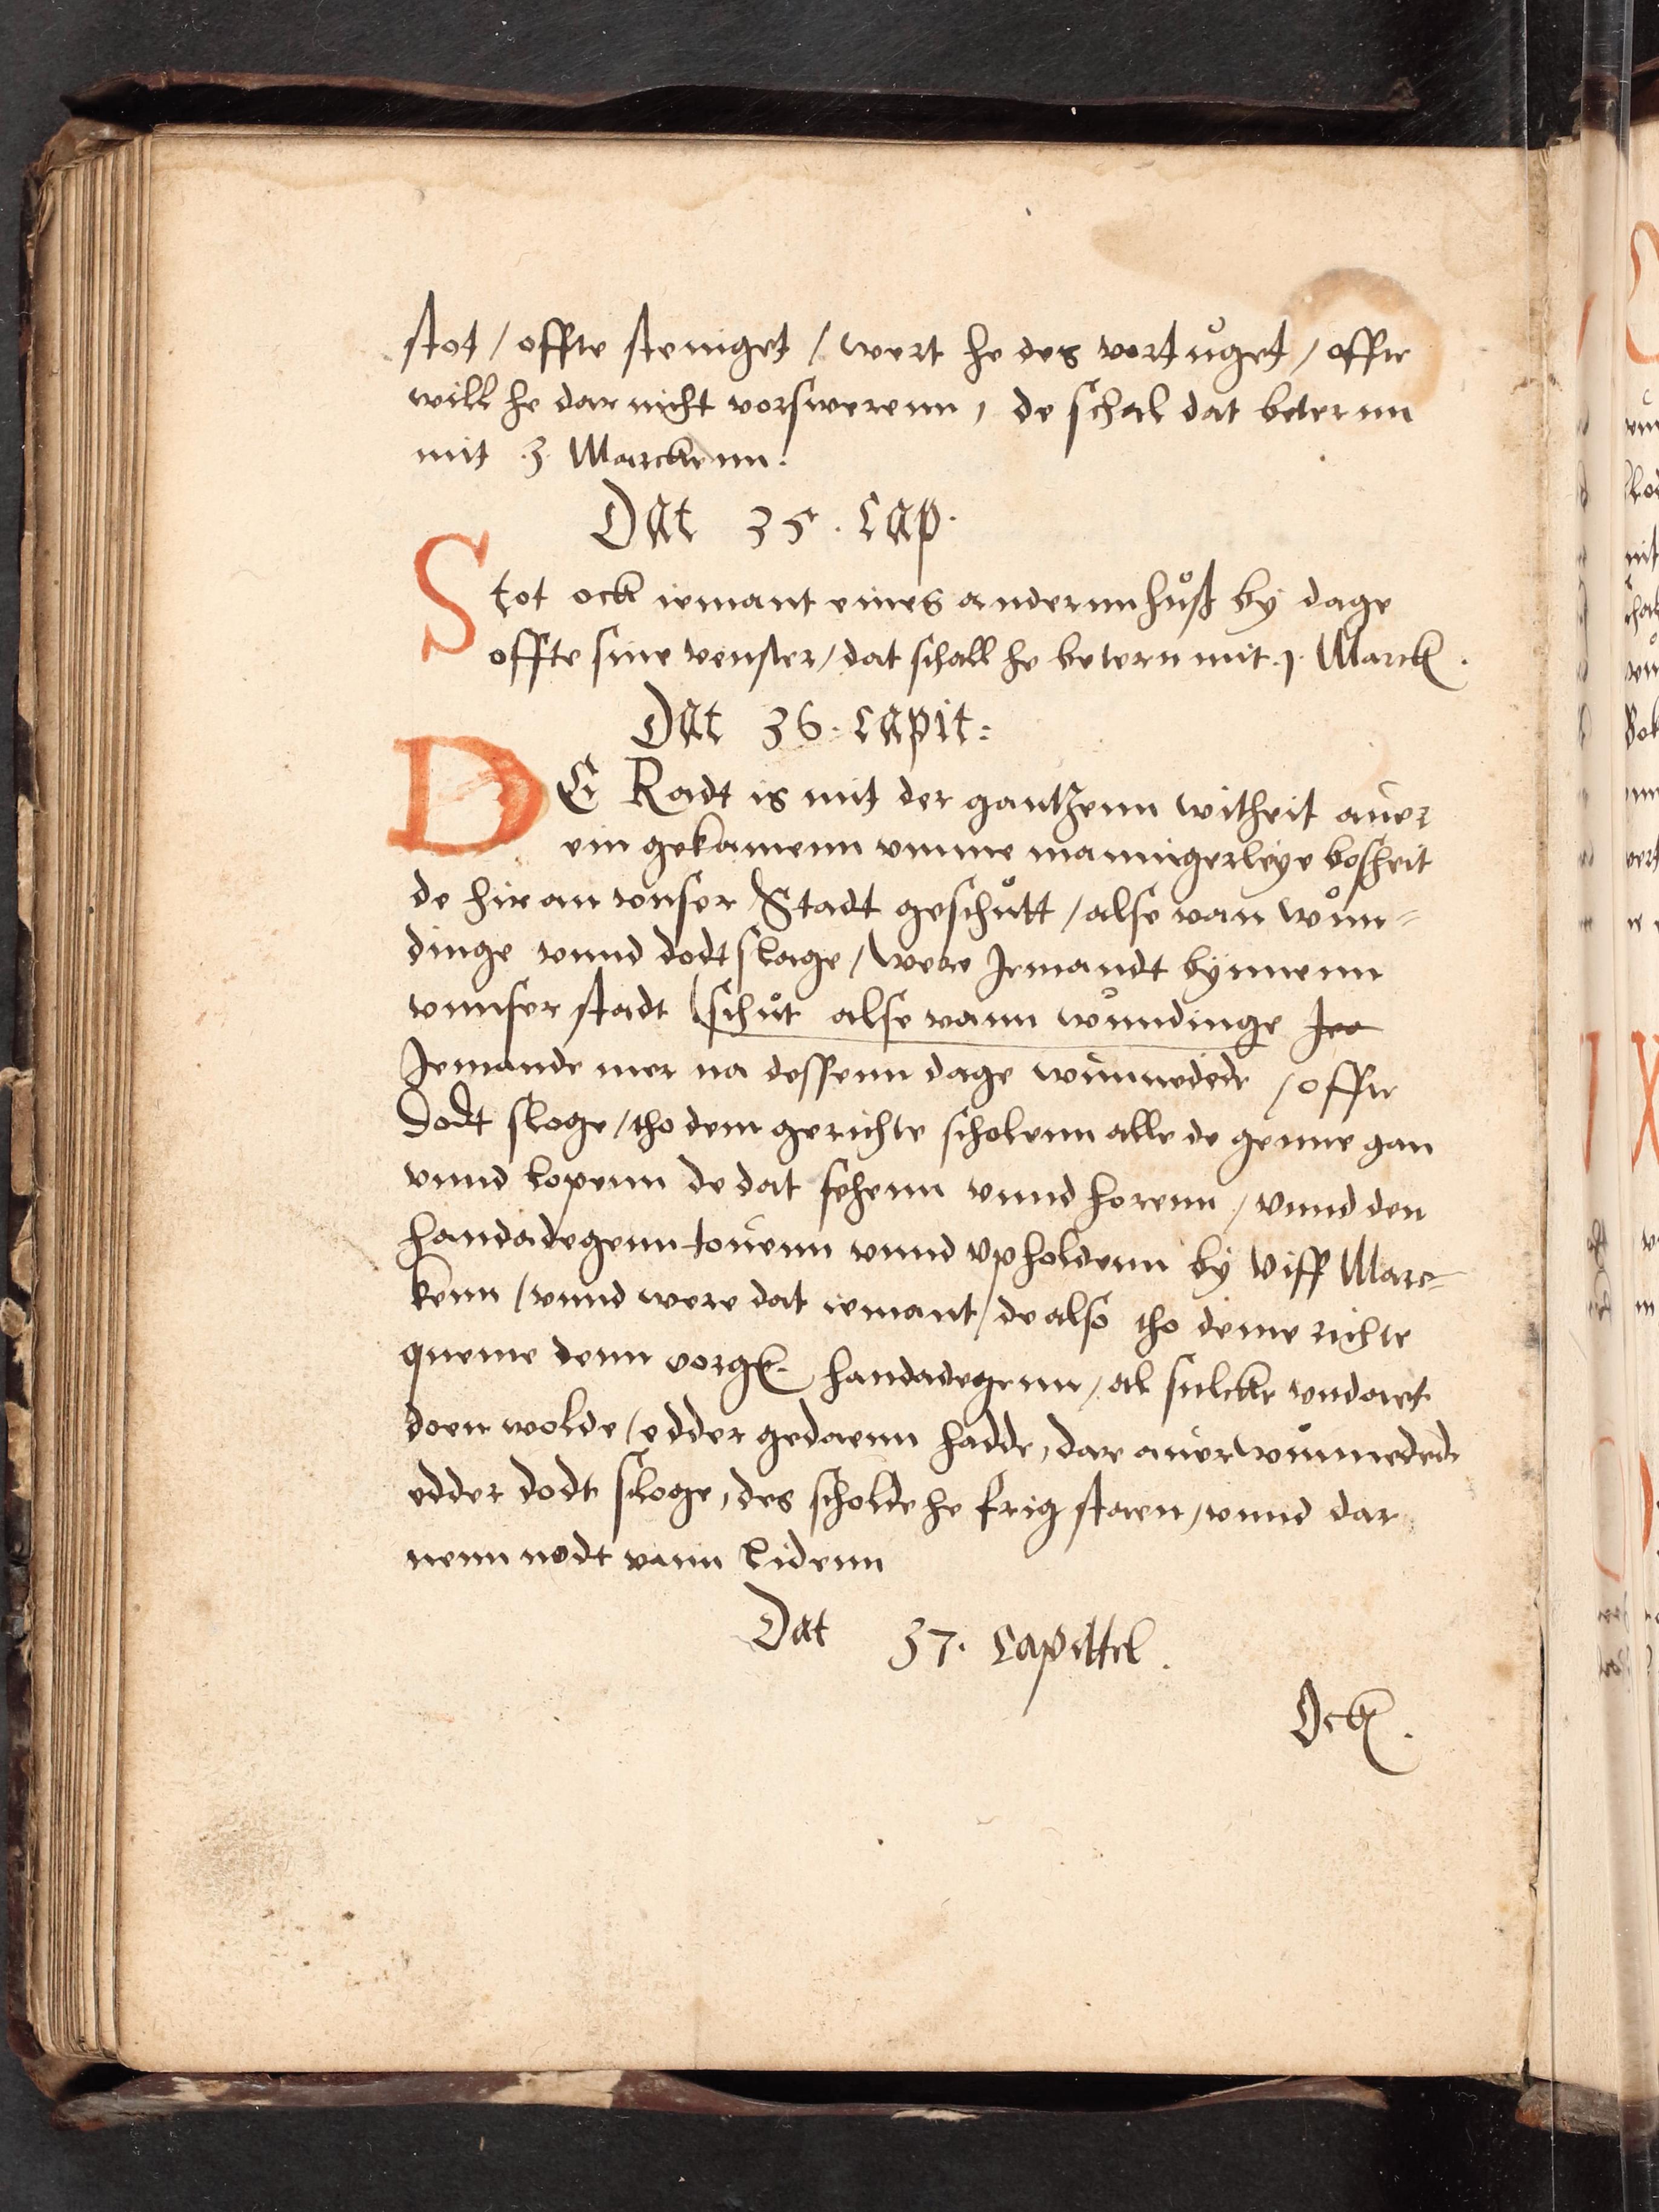 stot / offte steniget / wert he des vortůget / offte
will he dar nicht vorswerenn, de schal dat beternn
mit .3. Marckenn.
Dat 35. Cap.
Stot ock iemant eines andernn hůß by dage
offte sine venster / dat schall he betern mit .1. Marck.
Dat 36. Capit:
DE Radt is mit der gantzenn witheit auer
ein gekamenn vmme mannigerleye bosheit
de hir an vnser Stadt geschůtt / alse van wůn=
dinge vnnd dodtslage / were Jemandt bynnenn
vnnser stadt schůt alse vann wůndinge Jea
Jemande mer na dessenn dage wunnedede / offte
Dodt sloge / tho dem gerichte scholenn alle de genne gan
vnnd lopenn de dat sehenn vnnd horenn / vnnd den
handadegenn touenn vnnd vpholdenn by viff Marc=
kenn / vnnd were dat iemant / de also tho deme richte
queme denn vorg. handadegenn / al sulcke vndaet
doen wolde / edder gedaenn hadde, dar auer wůnnedede
edder dodt sloge, des scholde he frig staen / vnnd dar
nenn nodt vann lidenn
Dat 37. Capittel.
Ock.